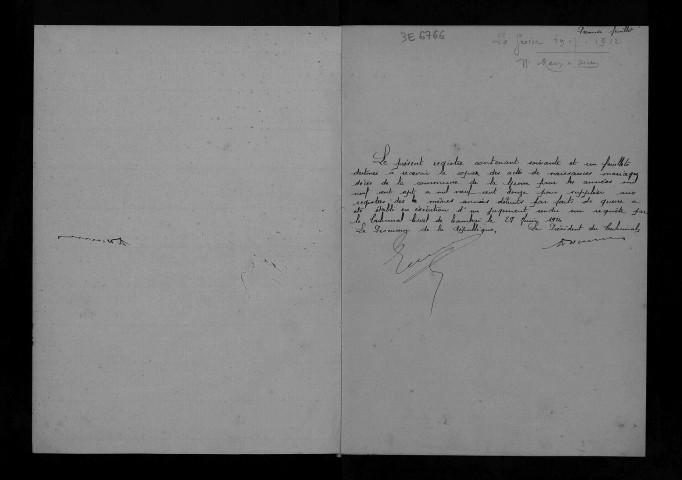 Premier feuillet
3E6766
La 1912
N
Le présent registre contenant soixante et un feuillets
destiné à recevoir la copie des actes de naissances mariages
décès de la commune de la pour les années mil
neuf cent sept à mil neuf cent douze pour suppléer aux
registres des mêmes années détruits par faits de guerre a
été établi en exécution d'un jugement rendu sur requête par
le tribunal civil de Cambrai le 29 Juin
Le Procureur de la République, Le Président du Tribunal,